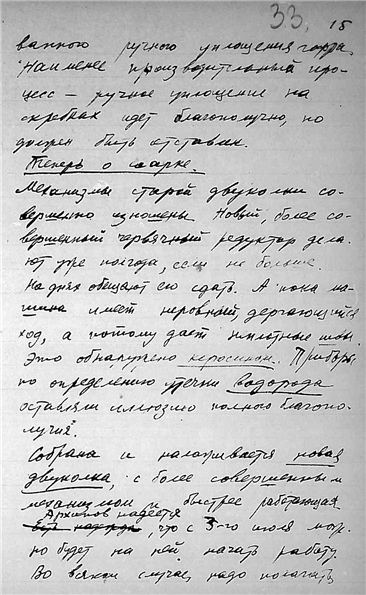 33. 15
ванного ручного уплощения гофра.
Наименее производительный про-
цесс — ручное уплощение на
скребках идет благополучно, но
должен быть отставлен.
Теперь о сварке.
Механизмы старой двуколки со-
вершенно изношены. Новый, более со-
вершенный червячный редуктор дела-
ют уже полгода, если не больше.
На днях обещают его сдать. А пока ма-
шина имеет неровный дергающийся
ход, а потому дает неплотные швы.
Это обнаружено керосином. Приборы
по определению утечки водорода
оставляли иллюзию полного благопо-
лучия.
Собрана и налаживается новая
двуколка, с более совершенным
механизмом и быстрее работающая.
Архипов надеется
что с 5-го июля мож-
но будет на ней начать работу.
Во всяком случае, надо полагать,